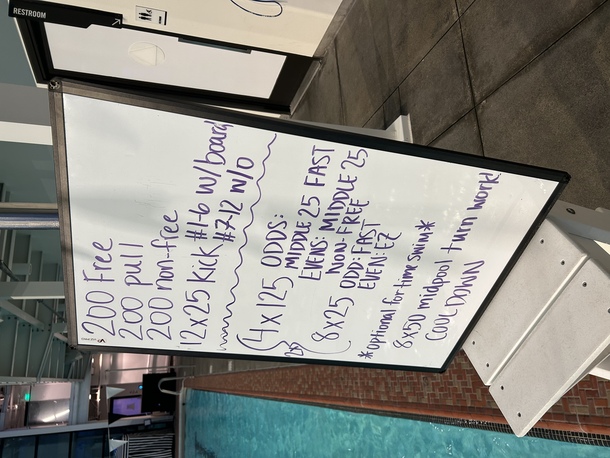 RESTROOM
200 Free
200 pull
200 non-free
12x25 Kick #1-6 w/board
#7-12 w/o
4x125 ODDS:
MIDDLE 25 FAST
EVENS: MIDDLE 25
NON-FREE
2x
8x25 ODD: FAST
EVEN: EZ
*optional for time swim*
8x50 midpool turn work!
COOL DOWN